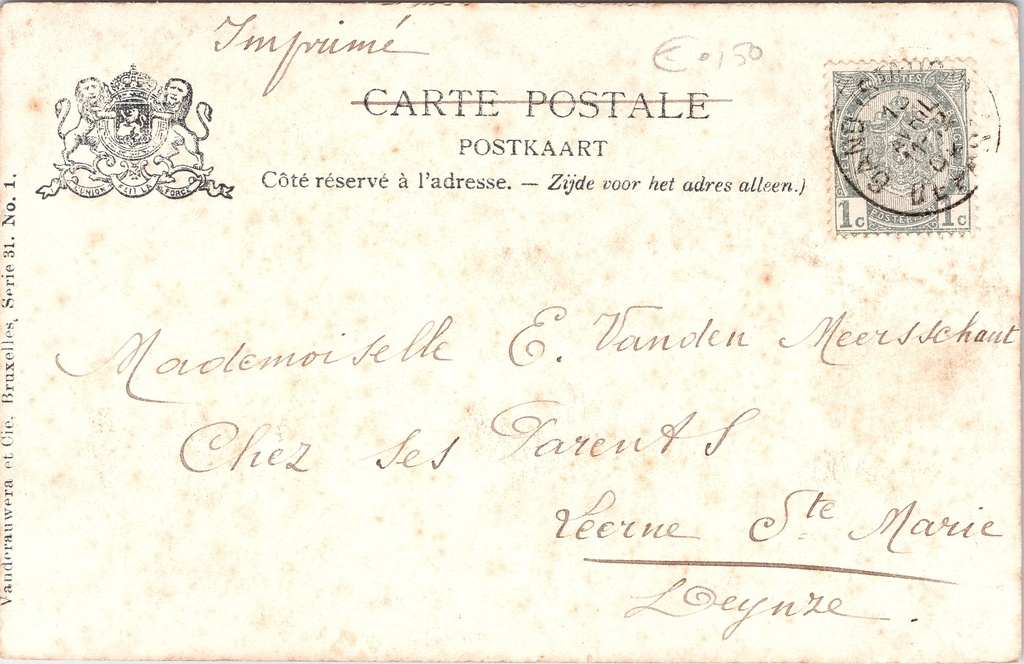 Imprimé
€ 0,50
L'UNION FAIT LA FORCE
CARTE POSTALE
POSTKAART
Côté réservé à l'adresse. — Zijde voor het adres alleen.)
POSTES
1c POSTERIJEN 1c
GAND
Vanderauwera et Cie, Bruxelles, Serie 31. No. 1.
Mademoiselle E. Vanden Meersschaut
Chez ses Parents
Leerne Ste Marie
Deynze